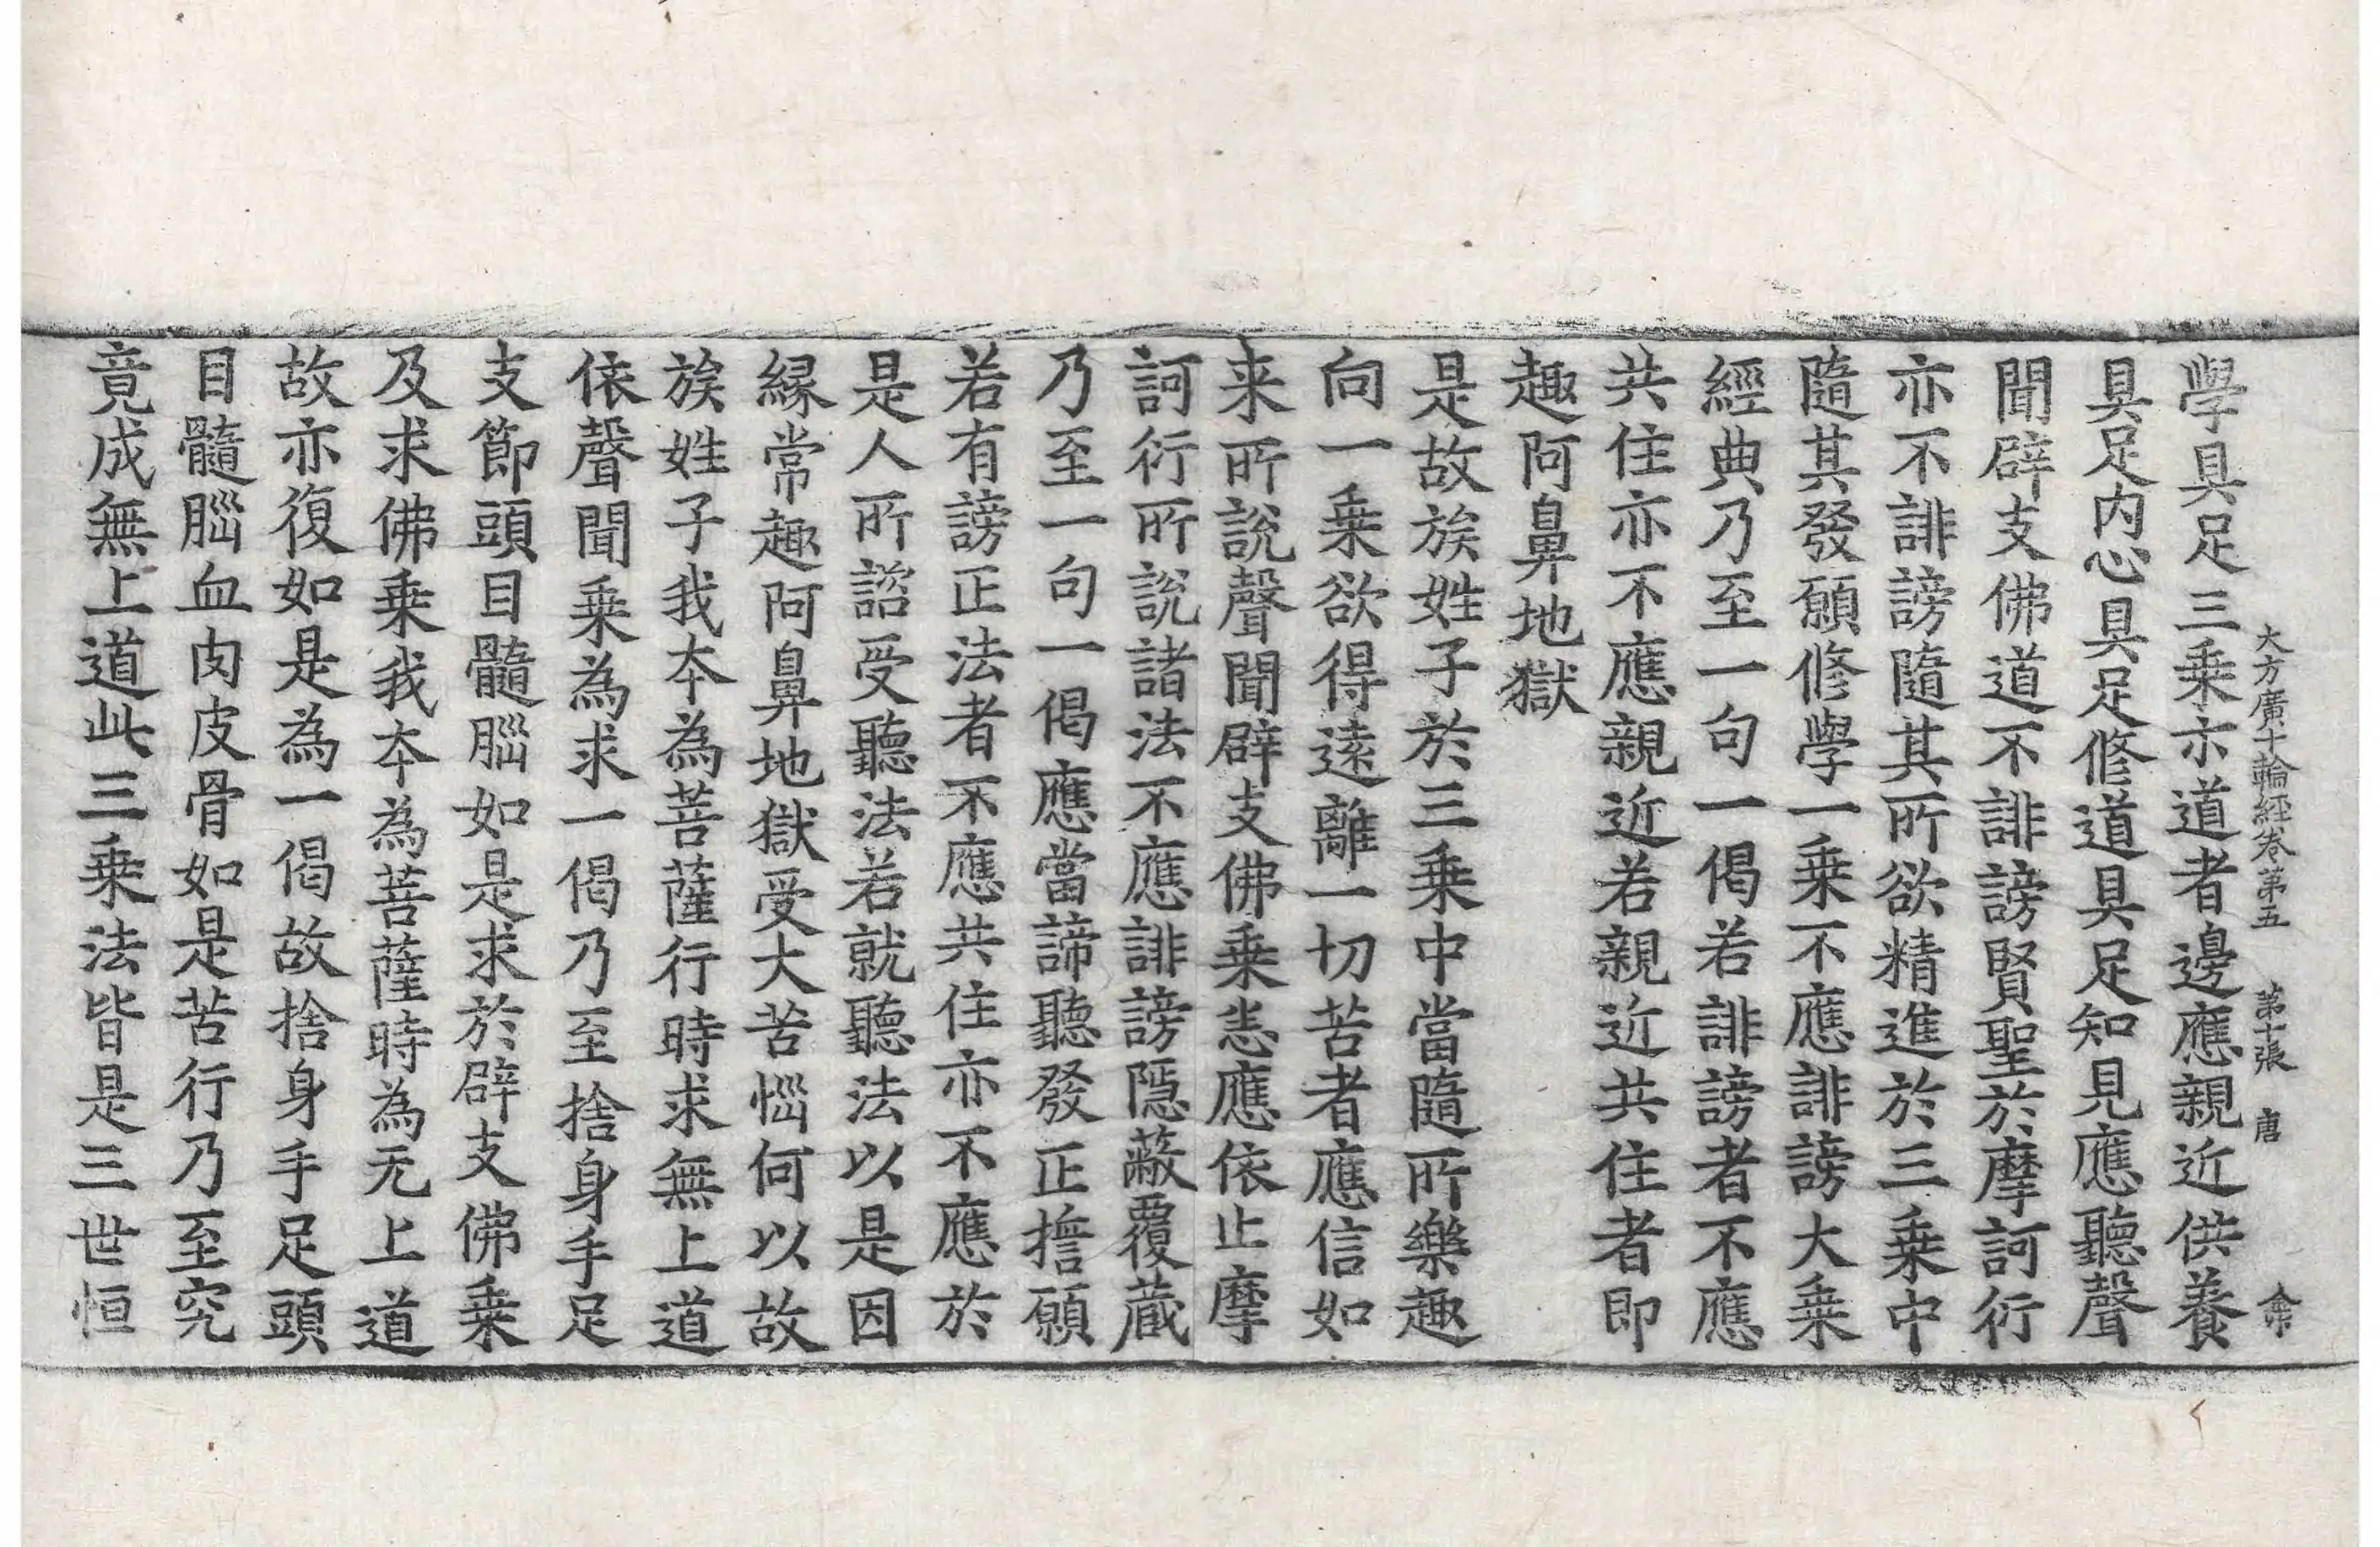 大方廣十輪經卷第五　第十張　唐
學具足三乗示道者邊應親近供養
具足内心具足修道具足知見應聽聲
聞辟支佛道不誹謗賢聖於摩訶衍
亦不誹謗隨其所欲精進於三乗中
隨其發願修學一乗不應誹謗大乗
經典乃至一句一偈若誹謗者不應
共住亦不應親近若親近共住者即
趣阿鼻地獄
是故族姓子於三乗中當隨所樂趣
向一乗欲得遠離一切苦者應信如
来所說聲聞辟支佛乗悉應依止摩
訶衍所說諸法不應誹謗隱蔽覆蔵
乃至一句一偈應當諦聽發正擔願
若有謗正法者不應共住亦不應於
是人所諮受聽法若就聽法以是因
縁常趣阿鼻地獄受大苦惱何以故
族姓子我夲為菩薩行時求無上道
依聲聞乗為求一偈乃至捨身手足
支節頭目髓腦如是求於辟支佛乗
及求佛乗我夲為菩薩時為无上道
故亦復如是為一偈故捨身手足頭
目髓腦血肉皮骨如是苦行乃至究
竟成無上道此三乗法皆是三世恒